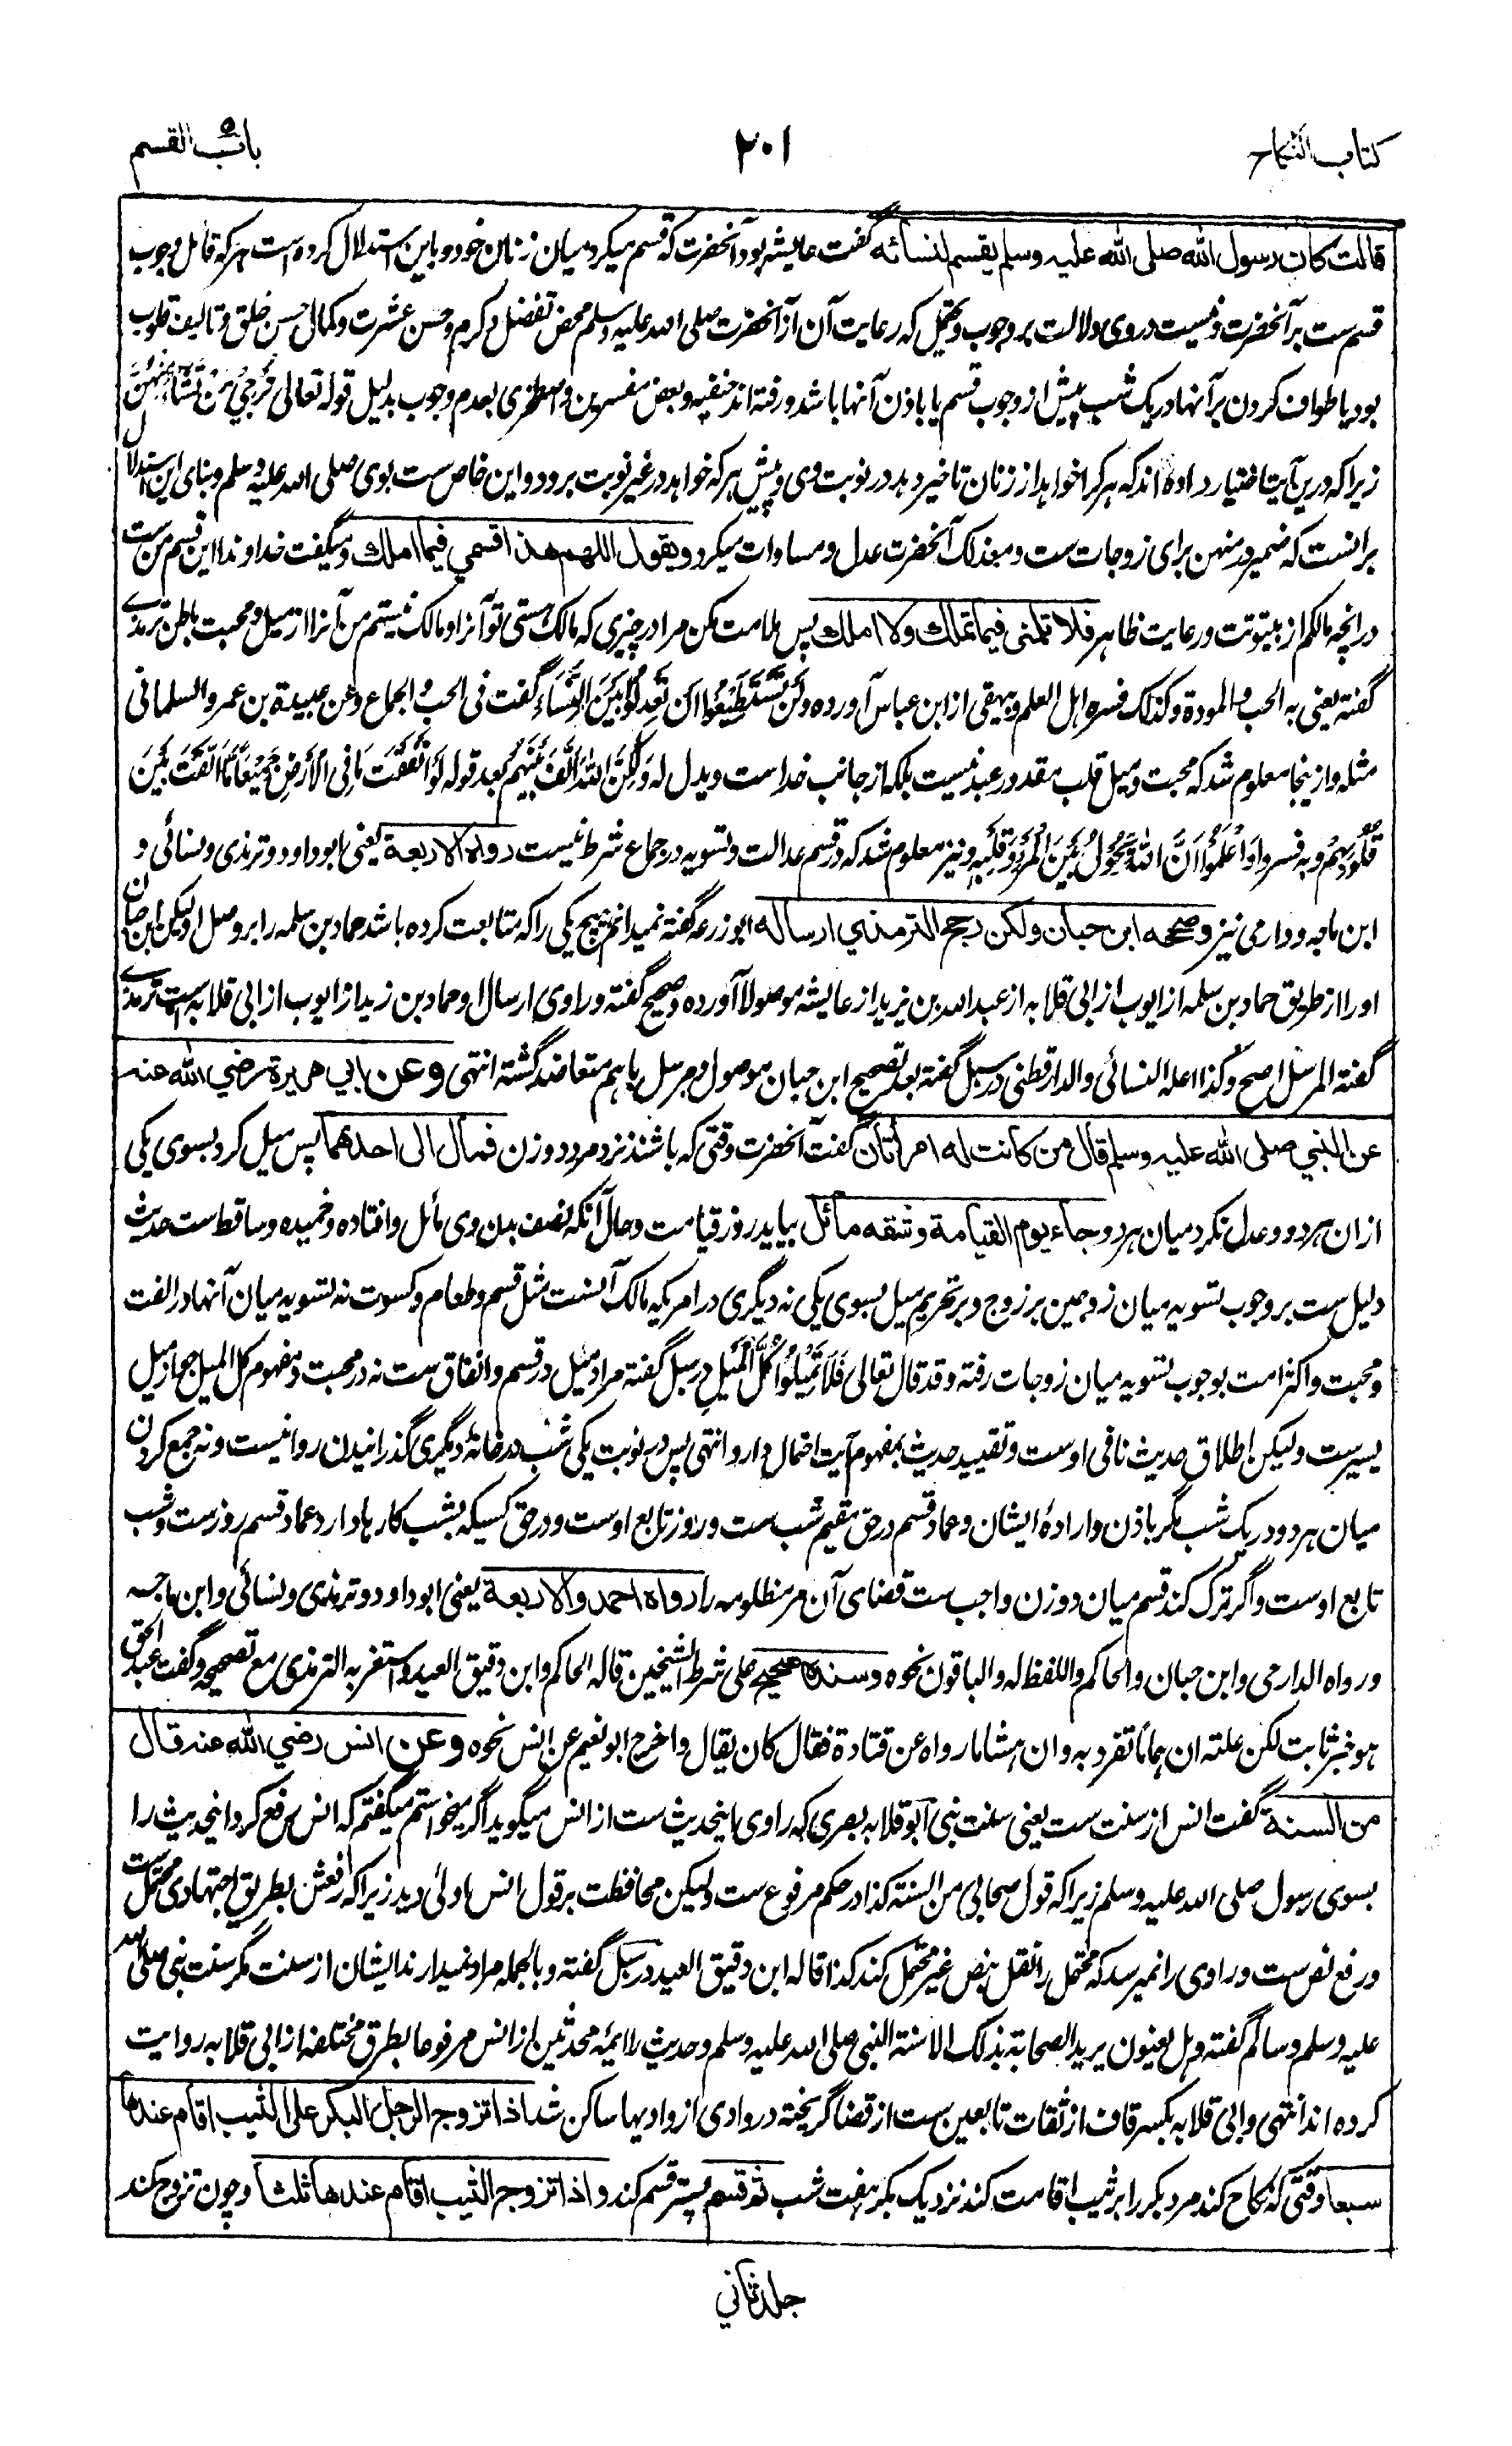 كتاب النكاح
٢٠١
باب القسم
قالت كان رسول الله صلى الله عليه وسلم يقسم لنسائه گفت عایشه بود آنحضرت که قسم میکرد میان زنان خود و باین استدلال کرده است هر که قائل بوجوب
قسم ست بر آنحضرت و نیست در وی دلالت بر وجوب و محتمل که رعایت آن از آنحضرت صلی الله علیه وسلم محض تفضل و کرم و حسن عشرت و کمال حسن خلق و تالیف قلوب
بود یا طواف کردن بر آنها در یک شب پیش از وجوب قسم یا باذن آنها باشد و رفته اند حنفیه و بعض مفسرین و اصطخری بعدم وجوب بدلیل قوله تعالی تُرْجِي مَنْ تَشَاءُ مِنْهُنَّ
زیرا که درین آیت اختیار داده اند که هر کرا خواهد از زنان تاخیر دهد در نوبت وی و پیش هر که خواهد در غیر نوبت برود و این خاص ست بوی صلی الله علیه وسلم و بنای این استدلال
برانست که ضمیر در منهن برای زوجات ست و معذلک آنحضرت عدل و مساوات میکرد ويقول اللهم هذا قسمي فيما املك و میگفت خداوندا این قسم من ست
در آنچه مالکم از بیتوتت و رعایت ظاهر فلا تلمني فيما تملك ولا املك پس ملامت مکن مرا در چیزی که مالک هستی تو آنرا و مالک نیستم من آنرا از میل و محبت باطن ترمذی
گفته یعنی به الحب والمودة وكذلك فسره اهل العلم و بیهقی از ابن عباس آورده وَلَنْ تَسْتَطِيعُوا اَنْ تَعْدِلُوا بَيْنَ النِّسَاءِ گفت في الحب والجماع وعن عبيدة بن عمرو السلماني
مثله و ازینجا معلوم شد که محبت و میل قلب مقدور عبد نیست بلکه از جانب خداست ویدل له وَلٰكِنَّ اللهَ اَلَّفَ بَيْنَهُمْ بعد قوله لَوْ اَنْفَقْتَ مَا فِي الْاَرْضِ جَمِيْعًا مَا اَلَّفْتَ بَيْنَ
قُلُوْبِهِمْ و به فسروا وَاعْلَمُوْا اَنَّ اللهَ يَحُوْلُ بَيْنَ الْمَرْءِ وَقَلْبِهٖ و نیز معلوم شد که در قسم عدالت و تسویه در جماع شرط نیست رواه الاربعة یعنی ابو داود و ترمذی و نسائی و
ابن ماجه و دارمی نیز وصححه ابن حبان ولكن رجح الترمذي ارساله ابوزرعه گفته نمیدانم هیچ یکی را که متابعت کرده باشد حماد بن سلمه را بر وصل او لیکن ابن حبان
او را از طریق حماد بن سلمه از ایوب از ابی قلابه از عبدالله بن یزید از عایشه موصولا آورده و صحیح گفته و راوی ارسال او حماد بن زید از ایوب از ابی قلابه است ترمذی
گفته المرسل اصح وكذا اعله النسائي والدارقطني در سبل گفته بعد تصحیح ابن حبان موصول و مرسل باهم متعاضد گشته انتهی وعن ابي هريرة رضي الله عنه
عن النبي صلى الله عليه وسلم قال من كانت له امرأتان گفت آنحضرت وقتی که باشند نزد مرد دو زن فمال الى احدهما پس میل کرد بسوی یکی
ازان هر دو و عدل نکرد میان هر دو جاء يوم القيامة وشقه مائل بیاید روز قیامت و حال آنکه نصف بدن وی مائل و افتاده و خمیده و ساقط ست حدیث
دلیل ست بر وجوب تسویه میان زوجین بر زوج و بر تحریم میل بسوی یکی نه دیگری در امریکه مالک آنست مثل قسم و طعام و کسوت نه تسویه میان آنها در الفت
و محبت و اکثر امت بوجوب تسویه میان زوجات رفته و قد قال تعالی فَلَا تَمِيْلُوْا كُلَّ الْمَيْلِ در سبل گفته مراد میل در قسم و انفاق ست نه در محبت و مفهوم کل المیل جواز میل
یسیرست ولیکن اطلاق حدیث نافی اوست و تقیید حدیث بمفهوم آیت احتمال دارد انتهی پس در نوبت یکی شب در خانهٔ دیگری گذرانیدن روا نیست و نه جمع کردن
میان هر دو در یک شب مگر باذن و ارادهٔ ایشان و عماد قسم در حق مقیم شب ست و روز تابع اوست و در حق کسیکه بشب کارها دارد عماد قسم روز ست و شب
تابع اوست و اگر ترک کند قسم میان دو زن واجب ست قضای آن مر مظلومه را رواه احمد والاربعة یعنی ابو داود و ترمذی و نسائی و ابن ماجه
و رواه الدارمي وابن حبان والحاكم واللفظ له والباقون نحوه وسنده صحيح علی شرط الشیخین قاله الحاکم وابن دقیق العید واستغربه الترمذي مع تصحیحه و گفت عبد الحق
هو خبر ثابت لكن علته ان هماما تفرد به وان هشاما رواه عن قتادة فقال كان يقال و اخرج ابو نعیم عن انس نحوه وعن انس رضي الله عنه قال
من السنة گفت انس از سنت ست یعنی سنت نبی ابو قلابه بصری که راوی اینحدیث ست از انس میگوید اگر میخواستم میگفتم که انس رفع کرد اینحدیث را
بسوی رسول صلی الله علیه وسلم زیرا که قول صحابی من السنة كذا در حکم مرفوع ست ولیکن محافظت بر قول انس اولی دید زیرا که رفعش بطریق اجتهادی محتمل ست
و رفع نص ست و راوی را نمیرسد که محتمل را نقل بنص غیر محتمل کند کذا قاله ابن دقیق العید در سبل گفته و بالجمله مراد نمیدارند ایشان از سنت مگر سنت نبی صلی الله
علیه وسلم و سالم گفته وهل یعنون یرید الصحابة بذلك الا سنة النبي صلى الله عليه وسلم و حدیث را ایمهٔ محدثین از انس مرفوعا بطرق مختلفه از ابی قلابه روایت
کرده اند انتهی و ابی قلابه بکسر قاف از ثقات تابعین ست از قضا گریخته در وادی از وادیها ساکن شد اذا تزوج الرجل البكر على الثيب اقام عندها
سبعا وقتی که نکاح کند مرد بکر را بر ثیب اقامت کند نزدیک بکر هفت شب ثم قسم پستر قسم کند واذا تزوج الثيب اقام عندها ثلثا و چون تزوج کند
جلد ثاني